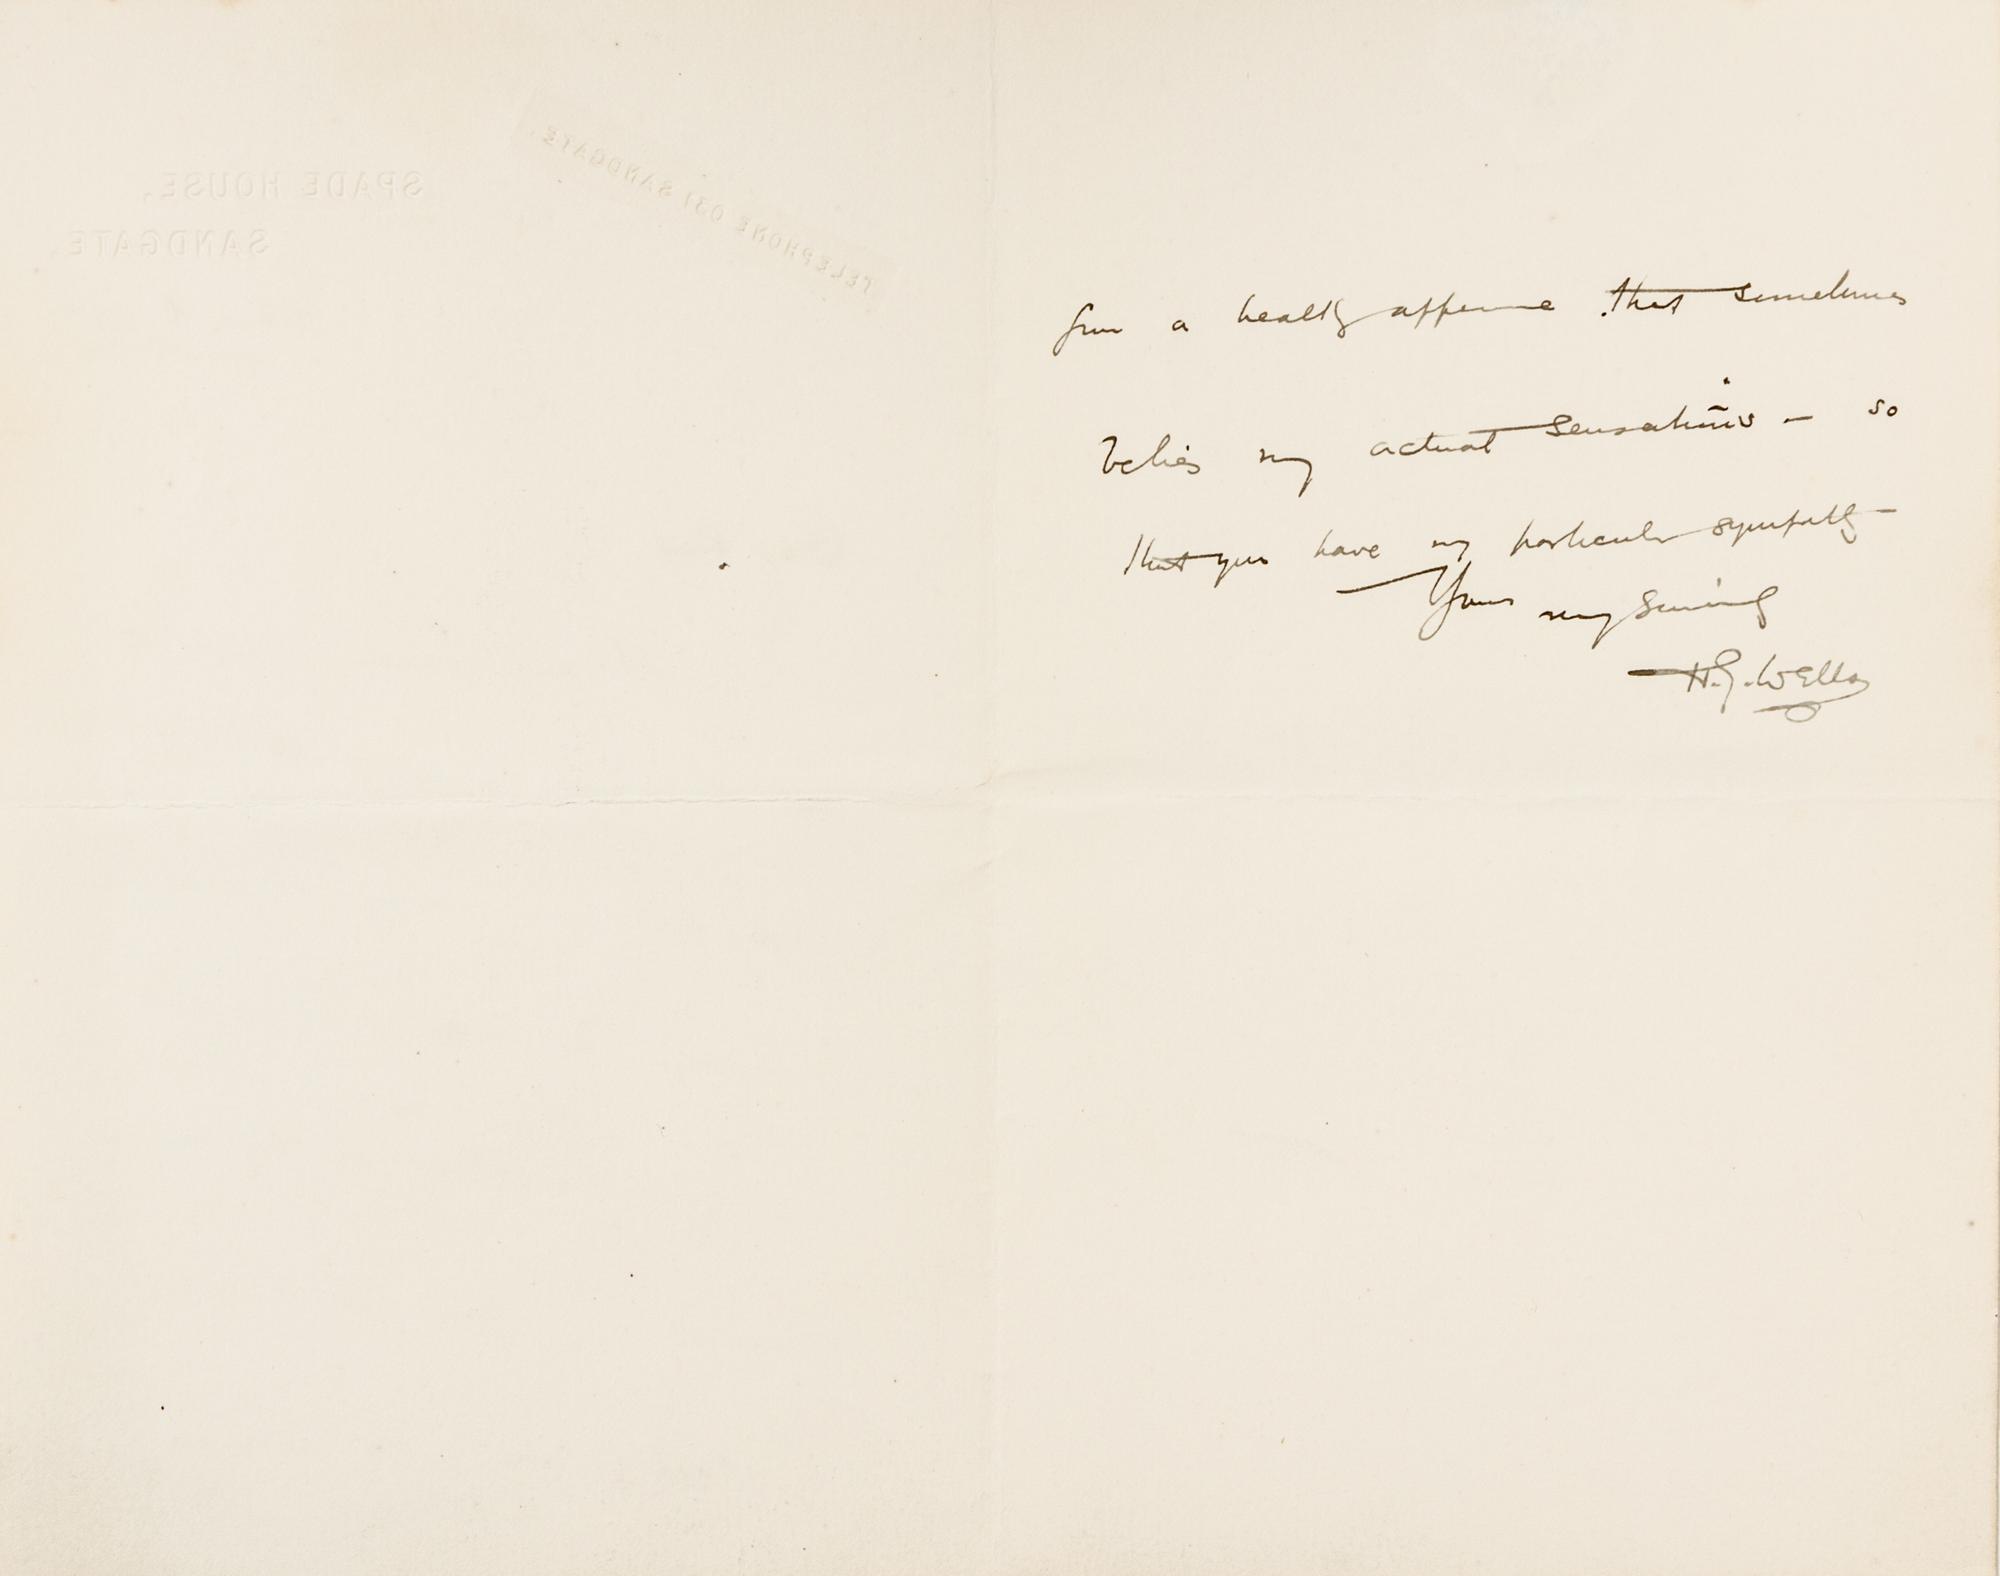 SPADE HOUSE,
SANDGATE.
TELEPHONE 031 SANDGATE.
from a healthy appearance that sometimes
belies my actual sensations – so
that you have my particular sympathy –
Yours very sincerely
H.G. Wells